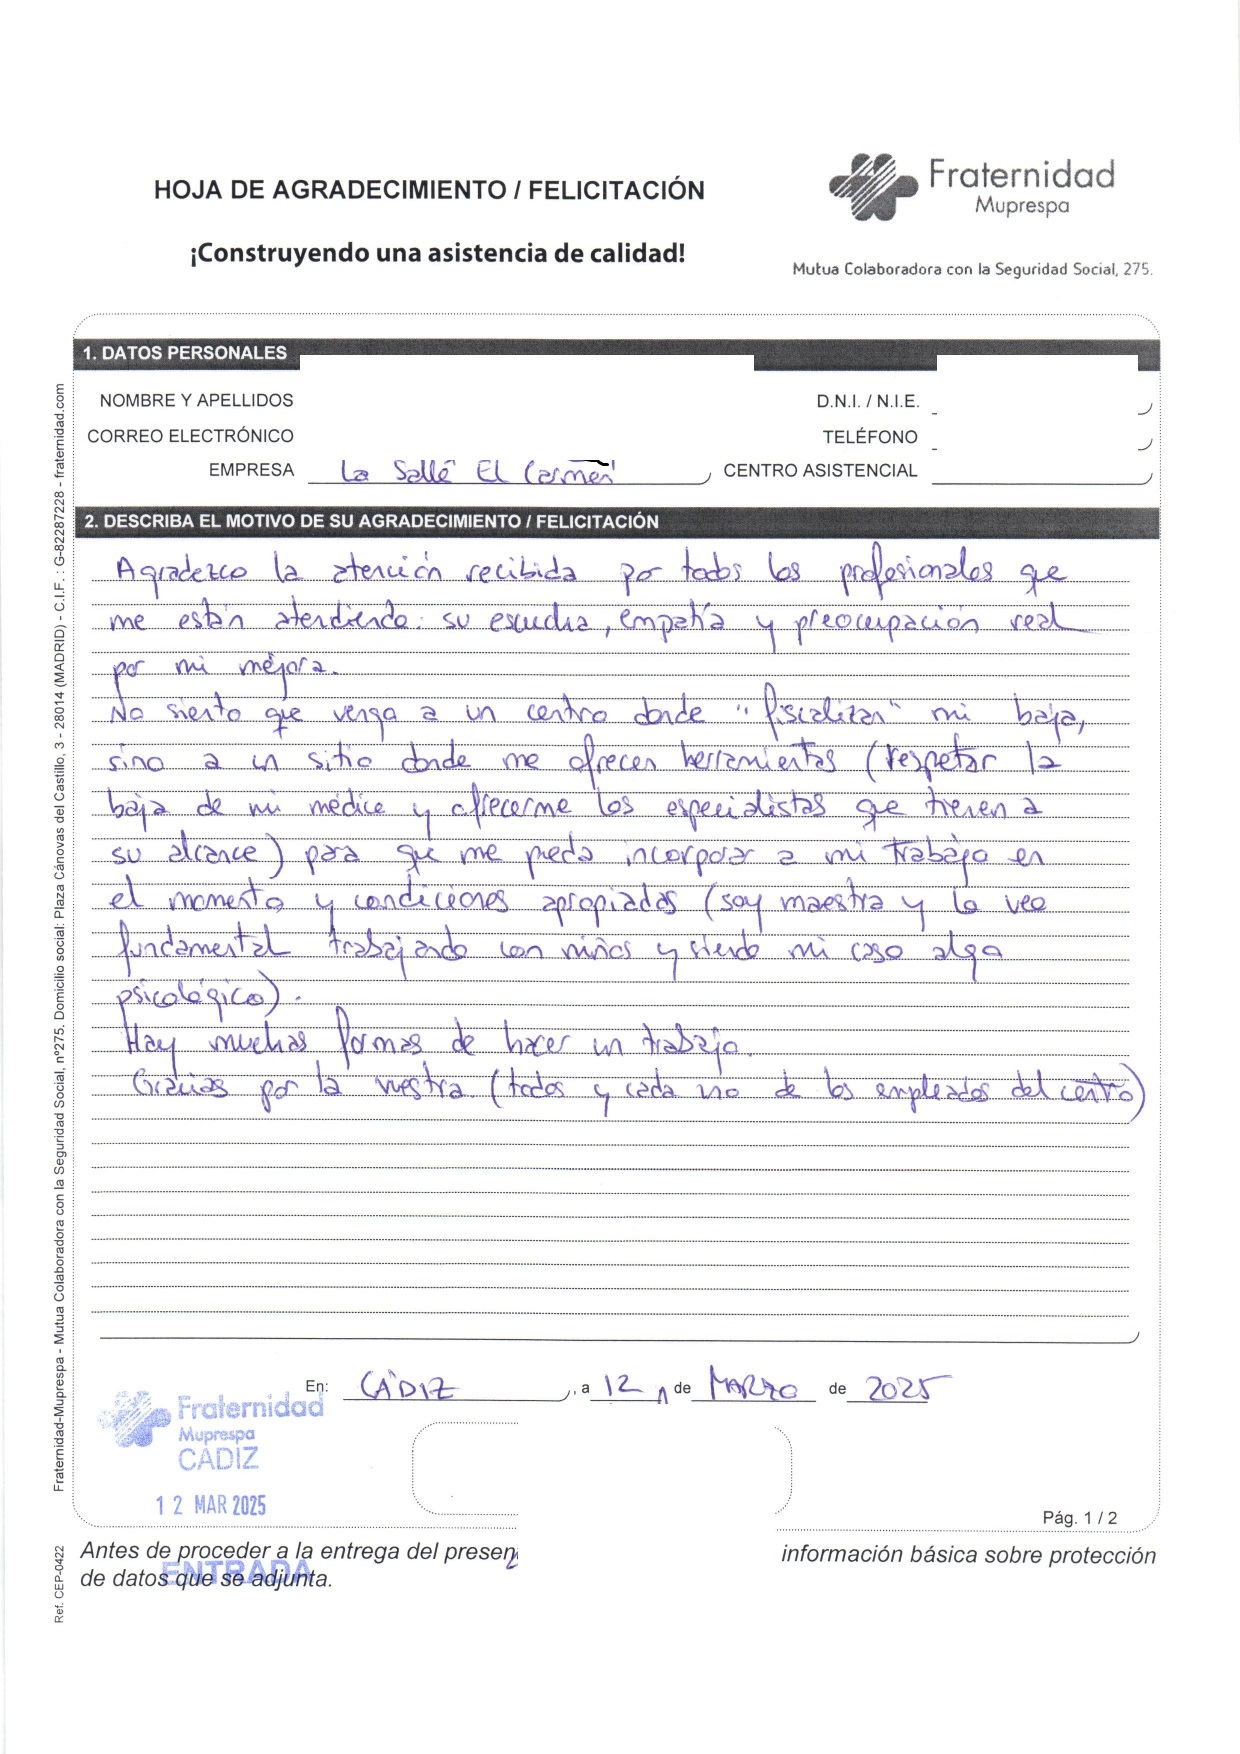 HOJA DE AGRADECIMIENTO / FELICITACIÓN
¡Construyendo una asistencia de calidad!
Fraternidad
Muprespa
Mutua Colaboradora con la Seguridad Social, 275.
1. DATOS PERSONALES
NOMBRE Y APELLIDOS
D.N.I. / N.I.E.
CORREO ELECTRÓNICO
TELÉFONO
EMPRESA La Salle El Carmen
CENTRO ASISTENCIAL
2. DESCRIBA EL MOTIVO DE SU AGRADECIMIENTO / FELICITACIÓN
Agradezco la atención recibida por todos los profesionales que
me están atendiendo: su escucha, empatía y preocupación real
por mi mejora.
No siento que venga a un centro donde "fiscalizan" mi baja,
sino a un sitio donde me ofrecen herramientas (respetar la
baja de mi médico y ofrecerme los especialistas que tienen a
su alcance) para que me pueda incorporar a mi trabajo en
el momento y condiciones apropiadas (soy maestra y lo veo
fundamental trabajando con niños y siendo mi caso algo
psicológico).
Hay muchas formas de hacer un trabajo.
Gracias por la vuestra (todos y cada uno de los empleados del centro)
En: CÁDIZ, a 12 de MARZO de 2025
Fraternidad
Muprespa
CÁDIZ
12 MAR 2025
ENTRADA
Pág. 1 / 2
Antes de proceder a la entrega del presen información básica sobre protección
de datos que se adjunta.
Fraternidad-Muprespa - Mutua Colaboradora con la Seguridad Social, nº275. Domicilio social: Plaza Cánovas del Castillo, 3 - 28014 (MADRID) - C.I.F. : G-82287228 - fraternidad.com
Ref. CEP-0422